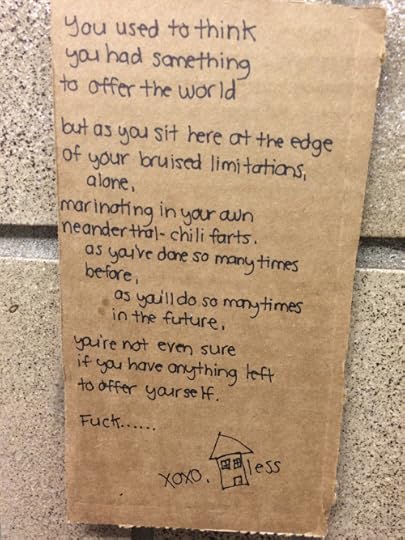 you used to think
you had something
to offer the world
but as you sit here at the edge
of your bruised limitations,
alone,
marinating in your own
neanderthal-chili farts.
as you've done so many times
before,
as you'll do so many times
in the future,
you're not even sure
if you have anything left
to offer yourself.
Fuck......
xoxo, less